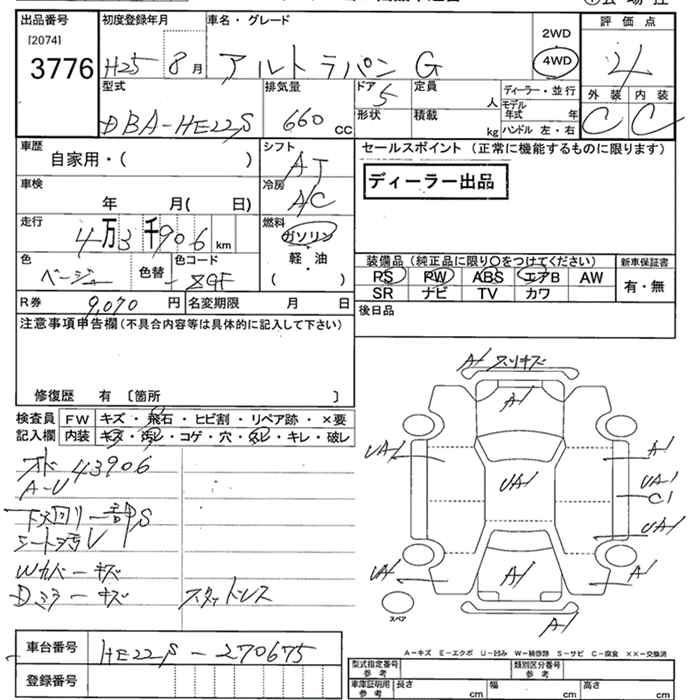 出品番号 初度登録年月 車名・グレード 評価点
[2074]
3776 H25 8月 アルトラパン G 2WD 4WD 4
外装 内装
C C
型式 排気量 ドア 定員 ディーラー・並行
DBA-HE22S 660 cc 5 人 モデル年式 年
形状 積載 kg ハンドル 左・右
車歴 自家用・( ) シフト AT
セールスポイント (正常に機能するものに限ります)
ディーラー出品
車検 年 月( 日) 冷房 A/C
走行 4万3千906km 燃料 ガソリン
軽・油
( )
色 ベージュ 色替 色コード
装備品 (純正品に限り○をつけてください) 新車保証書
PS PW ABS エアB AW 有・無
SR ナビ TV カワ
R券 9,070円 名変期限 月 日
後日品
注意事項申告欄(不具合内容等は具体的に記入して下さい)
修復歴 有 〔箇所 〕
検査員 FW キズ・飛石・ヒビ割・リペア跡・×要
記入欄 内装 キズ・汚レ・コゲ・穴・欠レ・キレ・破レ
オド 43906
下回り一部S
シート汚レ
Wカバーキズ
Dミラーキズ スタットレス
A1 スリキズ
A1
UA1 A1
UA1 UA1
C1
UA1
UA1 A1 A1
スペア
A1
A-キズ E-エクボ U-凹み W-補修跡 S-サビ C-腐食 XX-交換済
車台番号 HE22S-270675
登録番号
型式指定番号 参考 類別区分番号 参考
車庫証明用 参考 長さ cm 幅 cm 高さ cm